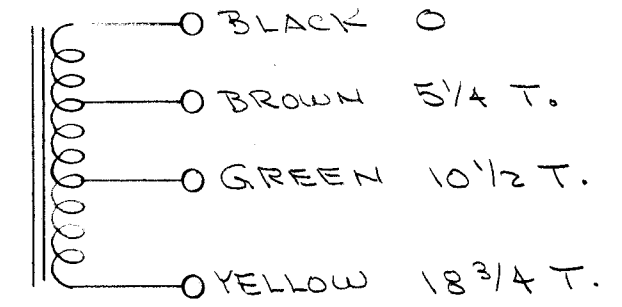 BLACK 0
BROWN 5 1/4 T.
GREEN 10 1/2 T.
YELLOW 18 3/4 T.